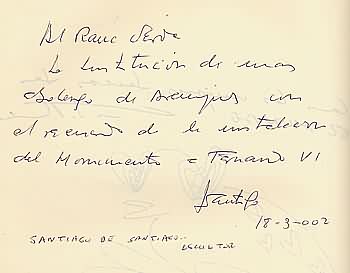 Al Rana Verde
La Institución de mas
abolengo de Aranjuez con
el recuerdo de la instalacion
del Monumento a Fernando VI
Santiago
18-3-002
SANTIAGO DE SANTIAGO..
ESCULTOR